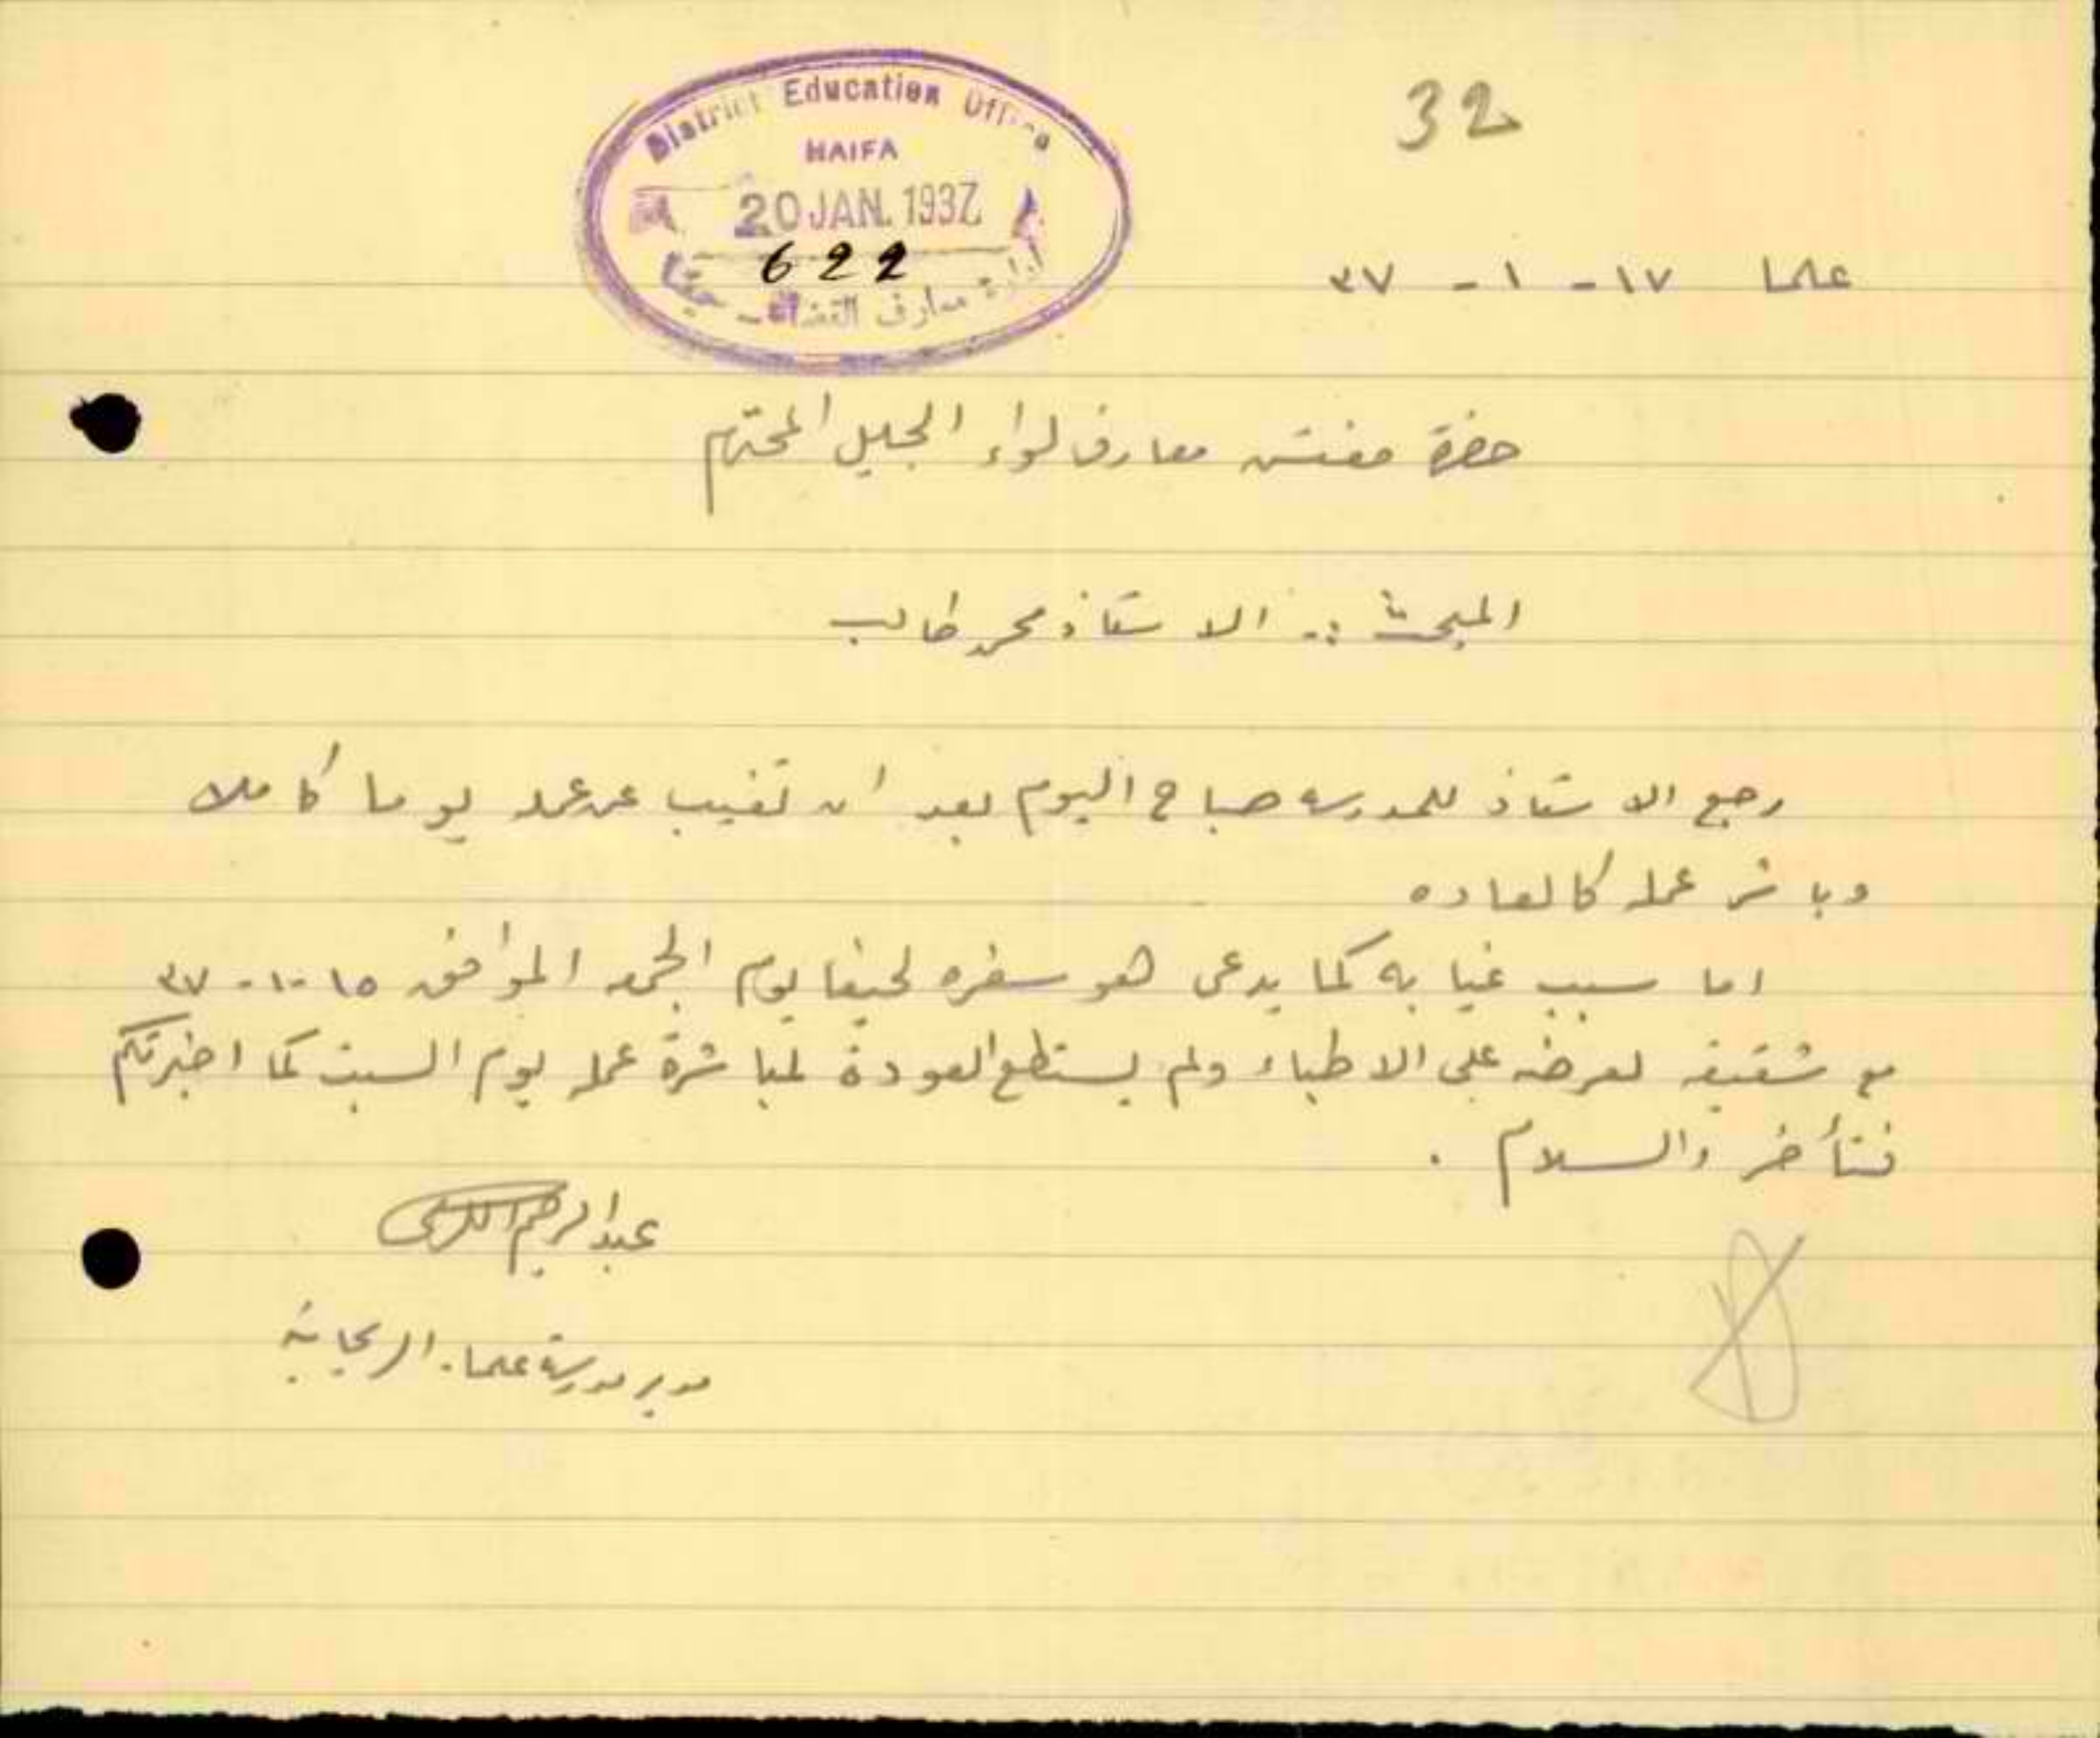 District Education Office
HAIFA
20 JAN. 1937
622
ادارة معارف القضاء - حيفا
32
علما ١٧ - ١ - ٣٧
حضرة مفتش معارف لواء الجليل المحترم
المبحث :- الاستاذ محمد طالب
رجع الاستاذ للمدرسه صباح اليوم بعد ان تغيب عن عمله يوما كاملا
وباشر عمله كالعاده
اما سبب غيابه كما يدعى هو سفره لحيفا يوم الجمعه الموافق ١٥-١-٣٧
مع شقيقه لعرضه على الاطباء ولم يستطع العودة لمباشرة عمله يوم السبت كما اخبرتكم
فتأخر والسلام .
عبد الرحيم
مدير مدرسة علما - الريحانية